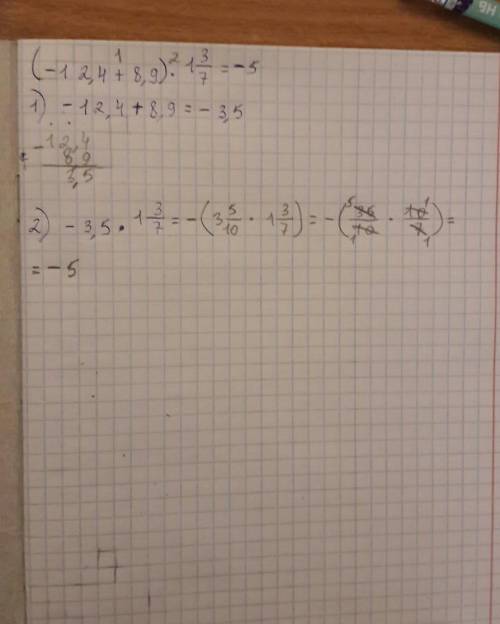 (-12,4 + 8,9) · 1 3/7 = -5
1 2
1) -12,4 + 8,9 = -3,5
-12,4
8 9
3,5
2) -3,5 · 1 3/7 = -(3 5/10 · 1 3/7) = -(35/10 · 10/7) =
5 1
1 1
= -5